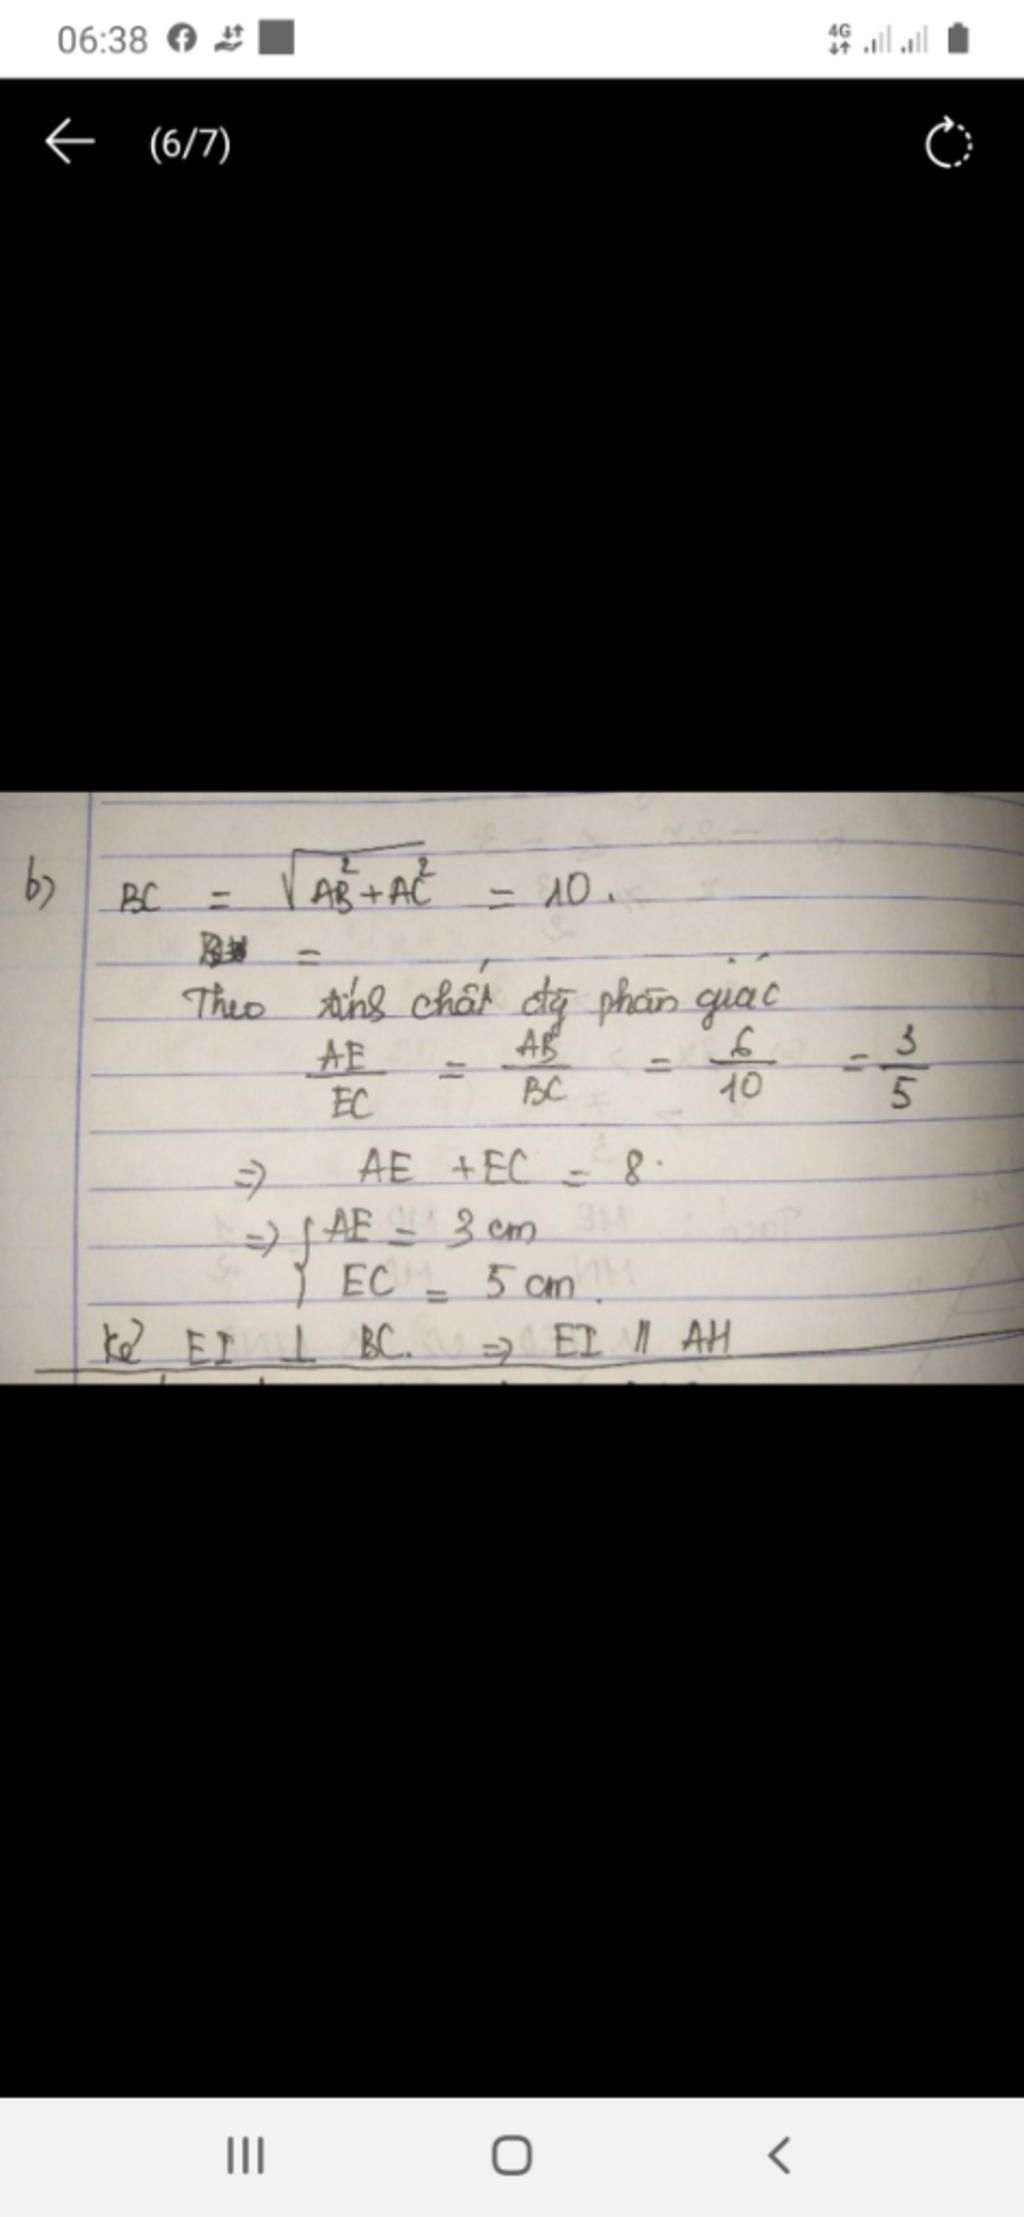 06:38 4G
(6/7)
b) BC = √AB²+AC² = 10.
=
Theo tính chất đg phân giác
AE/EC = AB/BC = 6/10 = 3/5
=> AE + EC = 8.
=> { AE = 3 cm
EC = 5 cm.
Kẻ EI ⊥ BC. => EI // AH